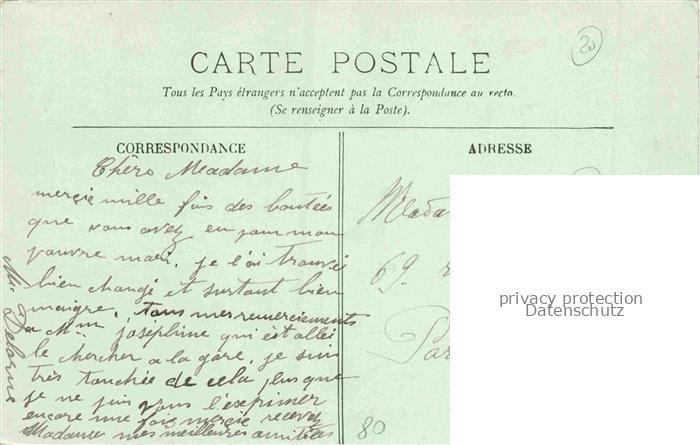 20
CARTE POSTALE
Tous les Pays étrangers n'acceptent pas la Correspondance au recto.
(Se renseigner à la Poste).
CORRESPONDANCE
Chèrs Meadame
merçie mille fois des bontées
que vous avez eu pour mon
pauvre mari, je l'ai trouvé
bien changé et surtout bien
maigre, tous mes remerciements
a Mme joséphine qui est allée
le chercher a la gare, je suis
très touchée de cela plus que
je ne puis vous l'exprimer
encore une fois merçie recevez
Madame mes meilleures amitiées
Me Delorme
ADRESSE
Mada
69. r
Par
80
privacy protection
Datenschutz